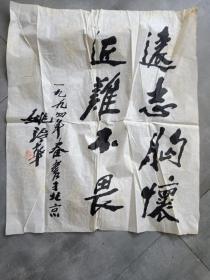 遠志胸懷
近難不畏
一九九四年春書于北京
姚治華